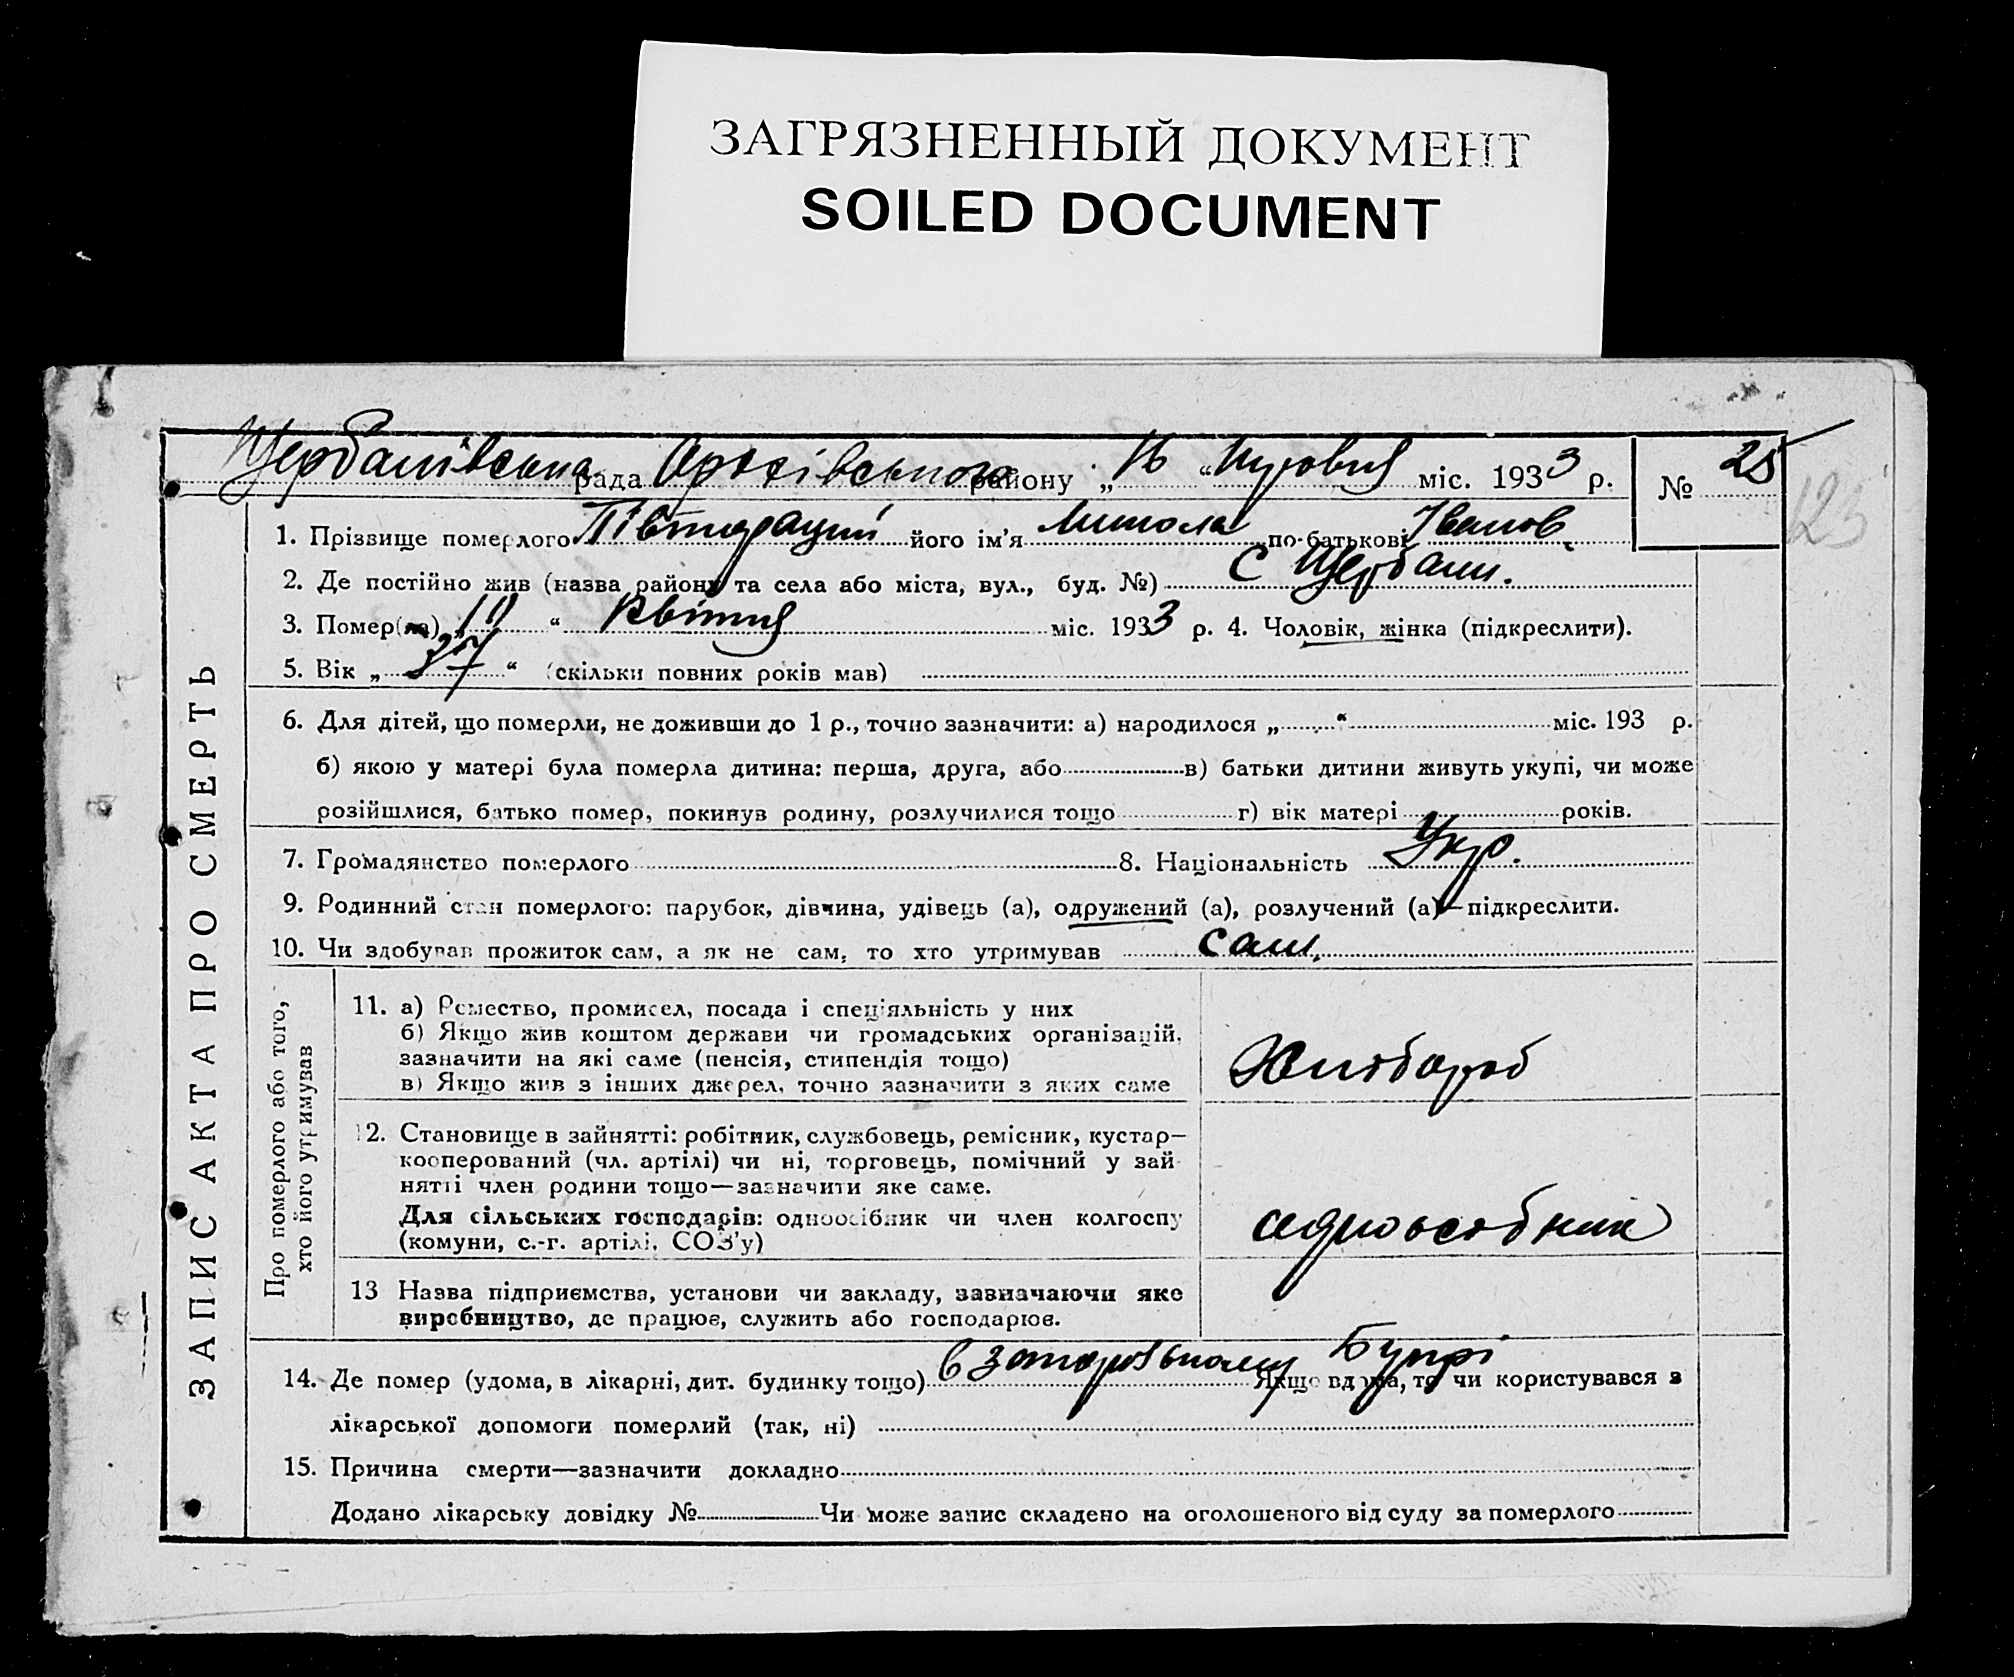 ЗАГРЯЗНЕННЫЙ ДОКУМЕНТ
SOILED DOCUMENT
Щербанівська рада району „16 “ міс. 1933 р. № 25
123
ЗАПИС АКТА ПРО СМЕРТЬ
1. Прізвище померлого його ім'я Микола по-батькові Іванов.
2. Де постійно жив (назва району та села або міста, вул., буд. №) С Щербани.
3. Помер(ла) „ “ Квітня міс. 1933 р. 4. Чоловік, жінка (підкреслити).
5. Вік „37“ (скільки повних років мав)
6. Для дітей, що померли, не доживши до 1 р., точно зазначити: а) народилося „ “ міс. 193 р.
б) якою у матері була померла дитина: перша, друга, або в) батьки дитини живуть укупі, чи може
розійшлися, батько помер, покинув родину, розлучилися тощо г) вік матері років.
7. Громадянство померлого 8. Національність Укр.
9. Родинний стан померлого: парубок, дівчина, удівець (а), одружений (а), розлучений (а)—підкреслити.
10. Чи здобував прожиток сам, а як не сам, то хто утримував сам.
Про померлого або того,
хто його утримував
11. а) Ремество, промисел, посада і спеціяльність у них
б) Якщо жив коштом держави чи громадських організацій,
зазначити на які саме (пенсія, стипендія тощо)
в) Якщо жив з інших джерел, точно зазначити з яких саме
Хлібороб
12. Становище в зайнятті: робітник, службовець, ремісник, кустар—
кооперований (чл. артілі) чи ні, торговець, помічний у зай
нятті член родини тощо—зазначити яке саме.
Для сільських господарів: одноосібник чи член колгоспу
(комуни, с.-г. артілі, СОЗ'у)
одноосібник
13 Назва підприємства, установи чи закладу, зазначаючи яке
виробництво, де працює, служить або господарює.
14. Де помер (удома, в лікарні, дит. будинку тощо) в Бупрі Якщо вдома, то чи користувався з
лікарської допомоги померлий (так, ні)
15. Причина смерти—зазначити докладно
Додано лікарську довідку № Чи може запис складено на оголошеного від суду за померлого